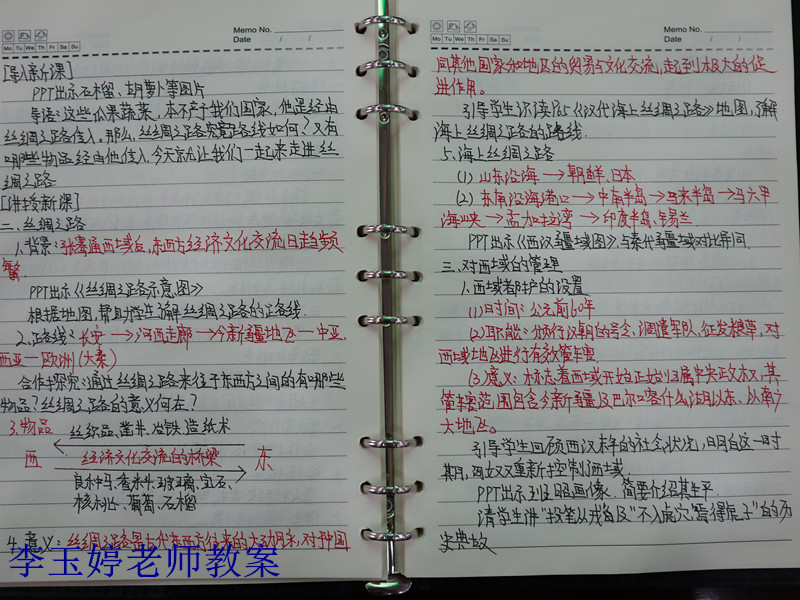 Memo No.
Date / /
Mo Tu We Th Fr Sa Su
[导入新课]
PPT出示石榴、胡萝卜等图片
导语:这些瓜果蔬菜,本不产于我们国家,他是经由
丝绸之路传入,那么,丝绸之路究竟路线如何?又有
哪些物品经由他传入,今天就让我们一起来走进丝
绸之路
[讲授新课]
二、丝绸之路
1.背景:张骞通西域后,东西方经济文化交流日趋频
繁
PPT出示《丝绸之路示意图》
根据地图,帮助学生了解丝绸之路的路线。
2.路线:长安→河西走廊→今新疆地区—中亚、
西亚—欧洲(大秦)
合作探究:通过丝绸之路来往于东西方之间的有哪些
物品?丝绸之路的意义何在?
3.物品 丝织品、凿井、冶铁、造纸术
西 经济文化交流的桥梁 东
良种马、香料、玻璃、宝石、
核桃、葡萄、石榴
4.意义:丝绸之路是古代东西方往来的大动脉,对中国
李玉婷老师教案
Memo No.
Date / /
Mo Tu We Th Fr Sa Su
同其他国家和地区的贸易与文化交流,起到极大的促
进作用。
引导学生识读《汉代海上丝绸之路》地图,了解
海上丝绸之路的路线.
5.海上丝绸之路
(1)山东沿海→朝鲜、日本
(2)东南沿海港口→中南半岛→马来半岛→马六甲
海峡→孟加拉湾→印度半岛、锡兰
PPT出示《西汉疆域图》,与秦代疆域对比异同.
三、对西域的管理
1.西域都护的设置
(1)时间:公元前60年
(2)职能:颁行汉朝的号令,调遣军队,征发粮草,对
西域地区进行有效管辖
(3)意义:标志着西域开始正式归属中央政权,其
管辖范围包含今新疆及巴尔喀什湖以东、以南广
大地区。
引导学生回顾西汉末年的社会状况,明白这一时
期,匈奴又重新控制西域.
PPT出示班超画像,简要介绍其生平.
请学生讲"投笔从戎"及"不入虎穴,焉得虎子"的历
史典故